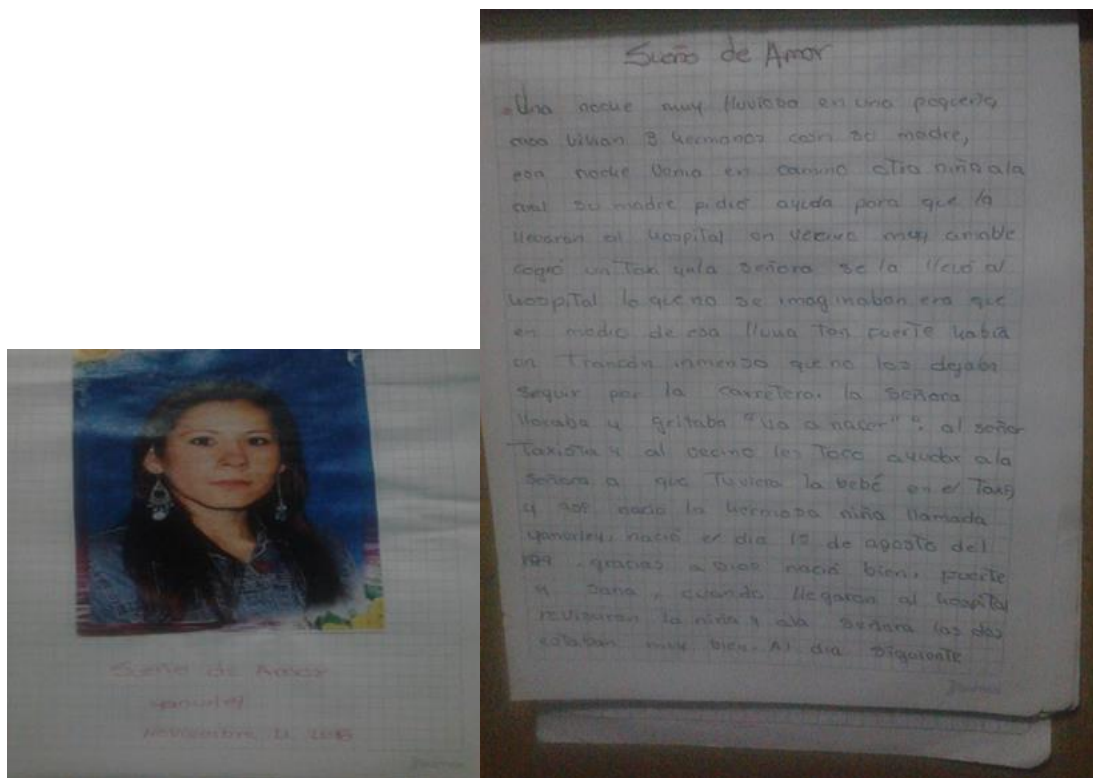 Sueño de Amor
Yanurley
Noviembre 21 2015
Sueño de Amor
Una noche muy lluvioba en una pequeña
casa vivian 3 hermanos con su madre,
esa noche venia en camino otra niña ala
cual su madre pidió ayuda para que la
llevaran al hospital un vecino muy amable
cogió un Taxi y ala señora se la llevó al
hospital lo que no se imaginaban era que
en medio de esa lluvia Tan fuerte había
un Trancón inmenso que no los dejaba
seguir por la carretera. la señora
lloraba y gritaba "va a nacer" al señor
Taxista y al vecino les Toco ayudar ala
señora a que Tuviera la bebé en el Taxi
y así nacio la hermosa niña llamada
yanurley, nació el día 15 de agosto del
gracias a Dios nació bien, fuerte
y sana, cuando llegaron al hospital
revisaron la niña y ala señora las dos
estaban muy bien. Al dia siguiente